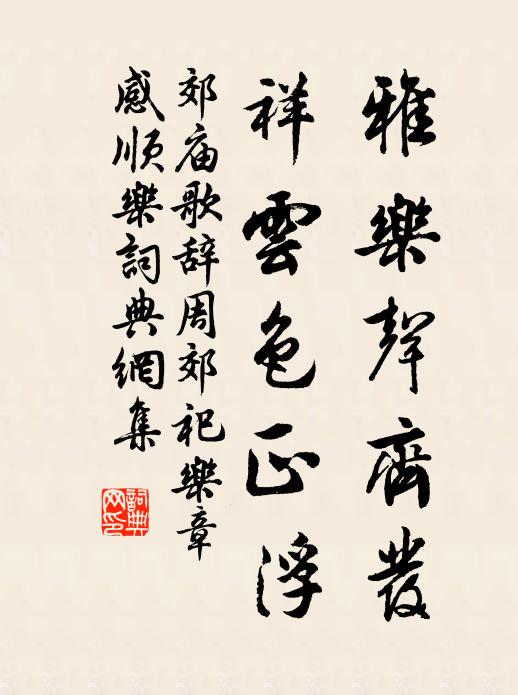 雅樂聲齊發
祥雲色正浮
郊庙歌辞周郊祀樂章
感順樂詞典網集
詞典网印